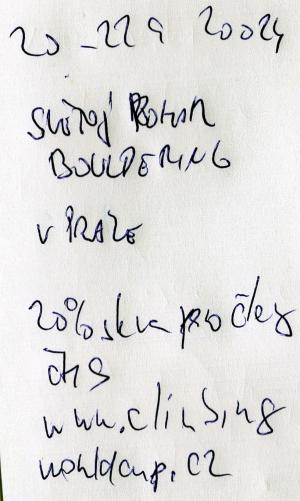 20 - 22 9 20024
Světoj Pohár
BOULDERING
v PRAZE
20% sleva pro členy
ČHS
www.climbing
worldcup.cz